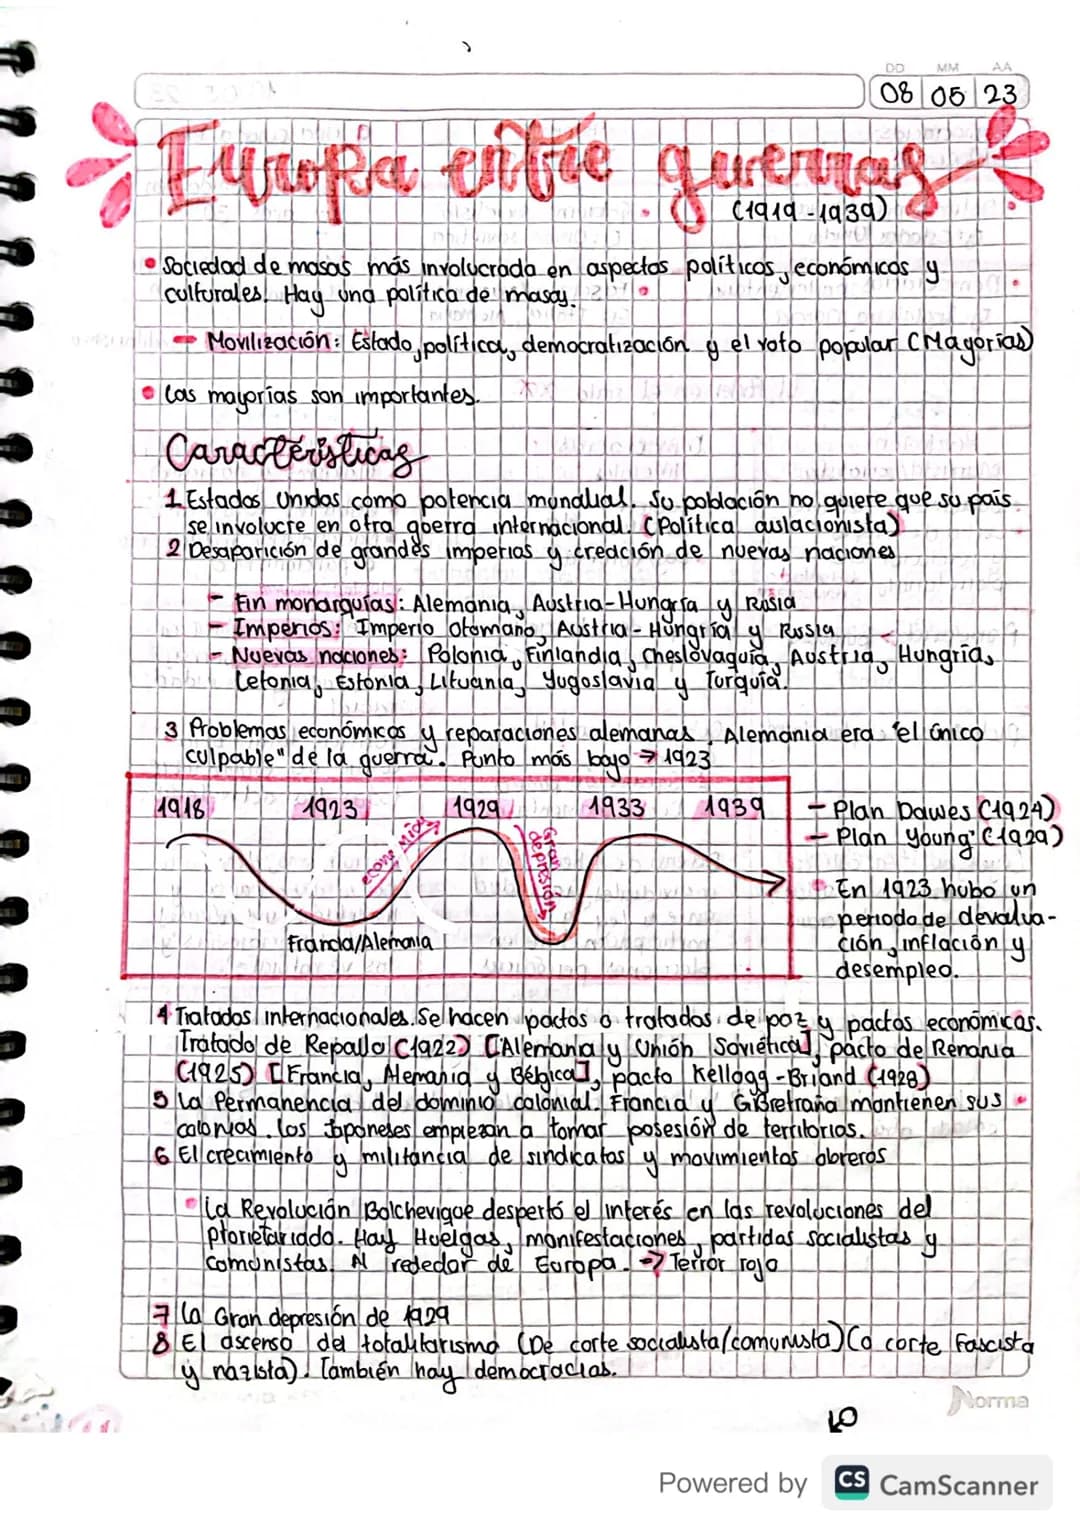 DD MM AA
08 05 23
Europa entre guerras
(1919-1939)
• Sociedad de masas más involucrada en aspectos políticos, económicos y
culturales. Hay una política de masas.
- Movilización: Estado, política, democratización y el voto popular (Mayorías)
• Las mayorías son importantes.
Características
1 Estados Unidos como potencia mundial. Su población no quiere que su país
se involucre en otra guerra internacional. (Política aislacionista)
2 Desaparición de grandes imperios y creación de nuevas naciones
- Fin monarquías: Alemania, Austria-Hungría y Rusia
- Imperios: Imperio Otomano, Austria-Hungría y Rusia
- Nuevas naciones: Polonia, Finlandia, Cheslovaquia, Austria, Hungría,
Letonia, Estonia, Lituania, Yugoslavia y Turquía.
3 Problemas económicos y reparaciones alemanas. Alemania era "el único
culpable" de la guerra. Punto más bajo → 1923
1918 1923 1929 1933 1939
Economía
Gran depresión
Francia/Alemania
- Plan Dawes (1924)
- Plan Young (1929)
• En 1923 hubo un
periodo de devalua-
ción, inflación y
desempleo.
4 Tratados internacionales. Se hacen pactos o tratados de paz y pactos económicos.
Tratado de Repallo (1922) [Alemania y Unión Soviética], pacto de Renania
(1925) [Francia, Alemania y Bélgica], pacto Kellogg-Briand (1928)
5 La Permanencia del dominio colonial. Francia y G.Bretaña mantienen sus
colonias. Los Japoneses empiezan a tomar posesión de territorios.
6 El crecimiento y militancia de sindicatos y movimientos obreros
• La Revolución Bolchevique despertó el interés en las revoluciones del
proletariado. Hay Huelgas, manifestaciones, partidos socialistas y
comunistas. Al rededor de Europa. → Terror rojo
7 La Gran depresión de 1929
8 El ascenso del totalitarismo (De corte socialista/comunista) (o corte Fascista
y nazista). También hay democracias.
Norma
Powered by CS CamScanner